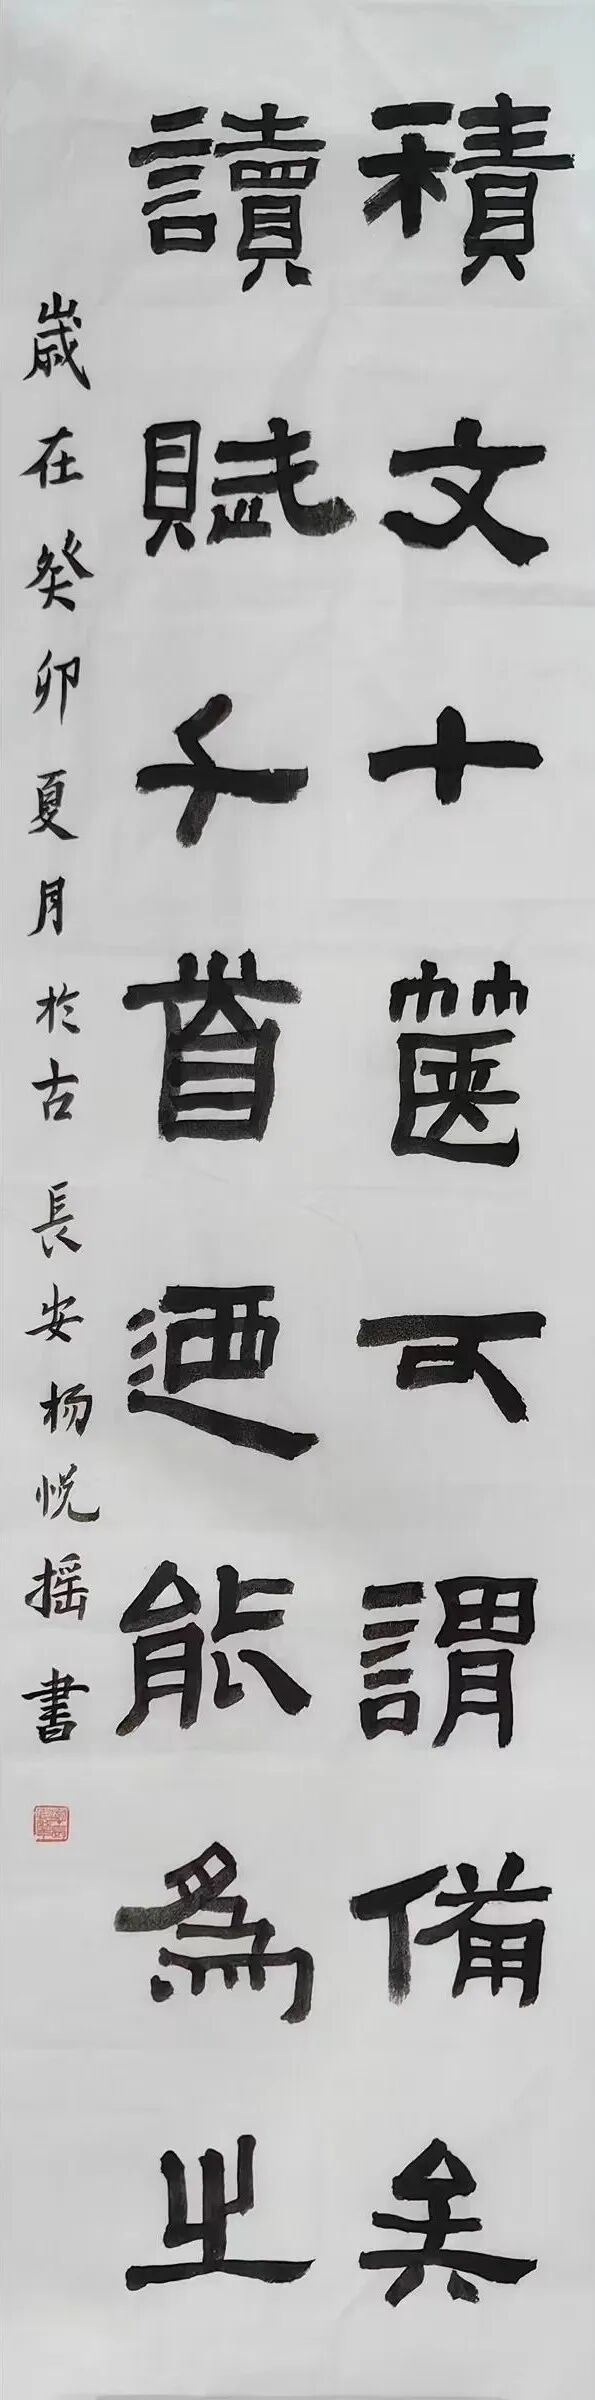 積文十篋可謂備矣
讀賦千首迺能為之
歲在癸卯夏月於古長安杨悦摇書